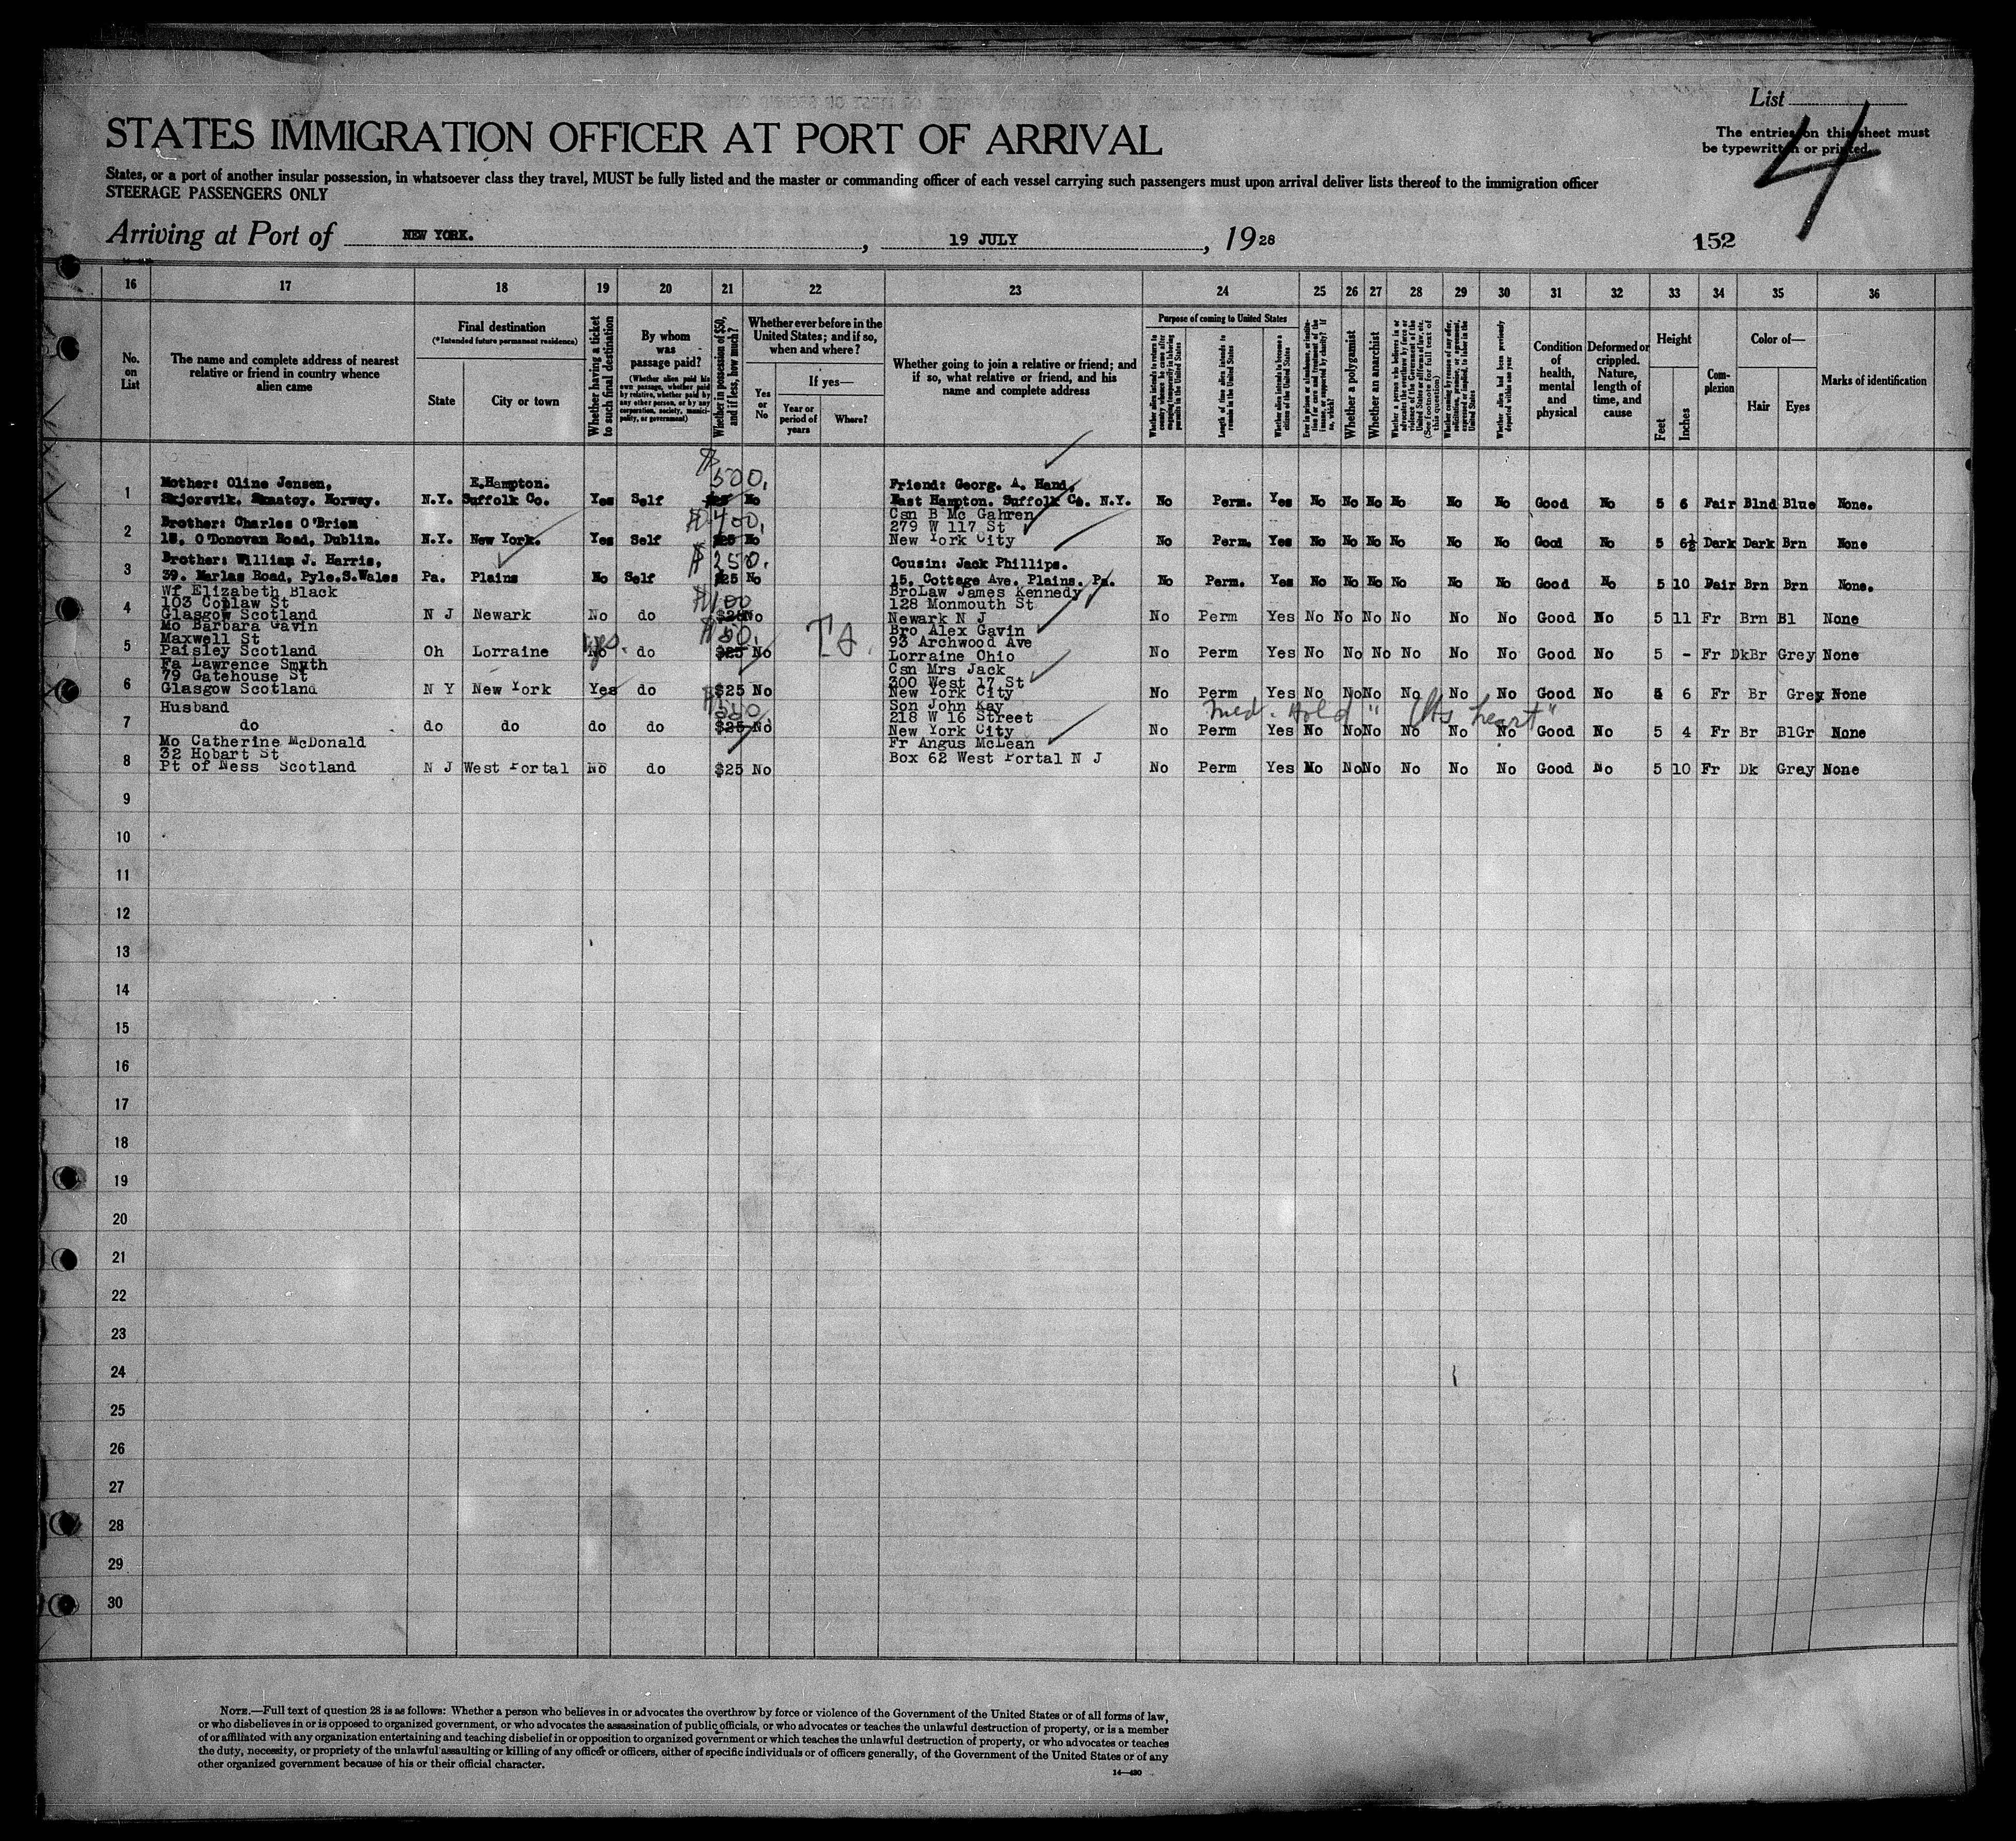 List
4
The entries on this sheet must
be typewritten or printed.
STATES IMMIGRATION OFFICER AT PORT OF ARRIVAL
States, or a port of another insular possession, in whatsoever class they travel, MUST be fully listed and the master or commanding officer of each vessel carrying such passengers must upon arrival deliver lists thereof to the immigration officer
STEERAGE PASSENGERS ONLY
Arriving at Port of NEW YORK. , 19 JULY , 1928
152
16 17 18 19 20 21 22 23 24 25 26 27 28 29 30 31 32 33 34 35 36
No. on List
The name and complete address of nearest
relative or friend in country whence
alien came
Final destination
(*Intended future permanent residence)
State
City or town
Whether having a ticket
to such final destination
By whom
was
passage paid?
(Whether alien paid his
own passage, whether paid
by relative, whether paid by
any other person, or by any
corporation, society, munici-
pality, or government)
Whether in possession of $50,
and if less, how much?
Whether ever before in the
United States; and if so,
when and where?
Yes or No
If yes—
Year or
period of
years
Where?
Whether going to join a relative or friend; and
if so, what relative or friend, and his
name and complete address
Purpose of coming to United States
Length of time alien intends to
remain in the United States
Whether alien intends to become a
citizen of the United States
Whether a polygamist
Whether an anarchist
Condition
of
health,
mental
and
physical
Deformed or
crippled.
Nature,
length of
time, and
cause
Height
Feet
Inches
Com-
plexion
Color of—
Hair
Eyes
Marks of identification
$ 500.
Mother: Oline Jensen, E.Hampton. Friend: Georg. A. Hand,
1 Norway. N.Y. Suffolk Co. Yes Self $25 No East Hampton. Suffolk Co. N.Y. No Perm. Yes No No No No No No Good No 5 6 Fair Blnd Blue None.
$400.
Brother: Charles O'Brien Csn B Mc Gahren
279 W 117 St
2 15, O'Donovan Road, Dublin. N.Y. New York. Yes Self $25 No New York City No Perm. Yes No No No No No No Good No 5 6½ Dark Dark Brn None
$250.
Brother: William J. Harris, Cousin: Jack Phillips.
3 39. Marlas Road, Pyle.S.Wales Pa. Plains No Self $25 No 15. Cottage Ave. Plains. Pa. No Perm. Yes No No No No No No Good No 5 10 Fair Brn Brn None.
$100
Wf Elizabeth Black BroLaw James Kennedy
103 Coplaw St 128 Monmouth St
4 Glasgow Scotland N J Newark No do $25 No Newark N J No Perm Yes No No No No No No Good No 5 11 Fr Brn Bl None
yes. $50.
Mo Barbara Gavin Bro Alex Gavin
Maxwell St 93 Archwood Ave
5 Paisley Scotland Oh Lorraine No do $25 No Lorraine Ohio No Perm Yes No No No No No No Good No 5 - Fr DkBr Grey None
Fa Lawrence Smyth Csn Mrs Jack
79 Gatehouse St 300 West 17 St
6 Glasgow Scotland N Y New York Yes do $25 No New York City No Perm Yes No No No No No No Good No 5 6 Fr Br Grey None
Med. Hold "Hs heart"
Husband Son John Kay
218 W 16 Street
7 do do do do do $25 No New York City No Perm Yes No No No No No No Good No 5 4 Fr Br BlGr None
Mo Catherine McDonald Fr Angus McLean
32 Hobart St Box 62 West Portal N J
8 Pt of Ness Scotland N J West Portal No do $25 No No Perm Yes No No No No No No Good No 5 10 Fr Dk Gray None
9
10
11
12
13
14
15
16
17
18
19
20
21
22
23
24
25
26
27
28
29
30
NOTE.—Full text of question 28 is as follows: Whether a person who believes in or advocates the overthrow by force or violence of the Government of the United States or of all forms of law,
or who disbelieves in or is opposed to organized government, or who advocates the assassination of public officials, or who advocates or teaches the unlawful destruction of property, or is a member
of or affiliated with any organization entertaining and teaching disbelief in or opposition to organized government or which teaches the unlawful destruction of property, or who advocates or teaches
the duty, necessity, or propriety of the unlawful assaulting or killing of any officer or officers, either of specific individuals or of officers generally, of the Government of the United States or of any
other organized government because of his or their official character.
14—430